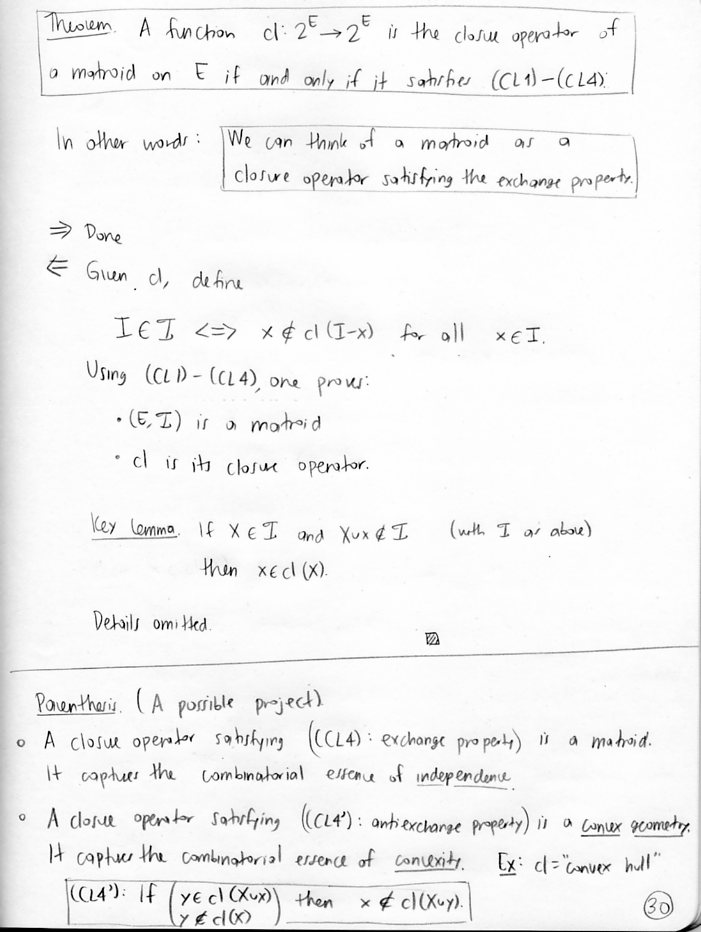 Theorem. A function cl: 2^E → 2^E is the closure operator of
a matroid on E if and only if it satisfies (CL1)-(CL4).
In other words: We can think of a matroid as a
closure operator satisfying the exchange property.
⇒ Done
⇐ Given cl, define
I ∈ 𝓘 <=> x ∉ cl(I-x) for all x ∈ I.
Using (CL1)-(CL4), one proves:
• (E, 𝓘) is a matroid
• cl is its closure operator.
Key Lemma. If X ∈ 𝓘 and X∪x ∉ 𝓘 (with 𝓘 as above)
then x ∈ cl(X).
Details omitted.
Parenthesis. (A possible project)
o A closure operator satisfying ((CL4): exchange property) is a matroid.
It captures the combinatorial essence of independence
o A closure operator satisfying ((CL4'): antiexchange property) is a convex geometry.
It captures the combinatorial essence of convexity. Ex: cl = "convex hull"
(CL4'): If (y ∈ cl(X∪x) then x ∉ cl(X∪y).
y ∉ cl(X))
30